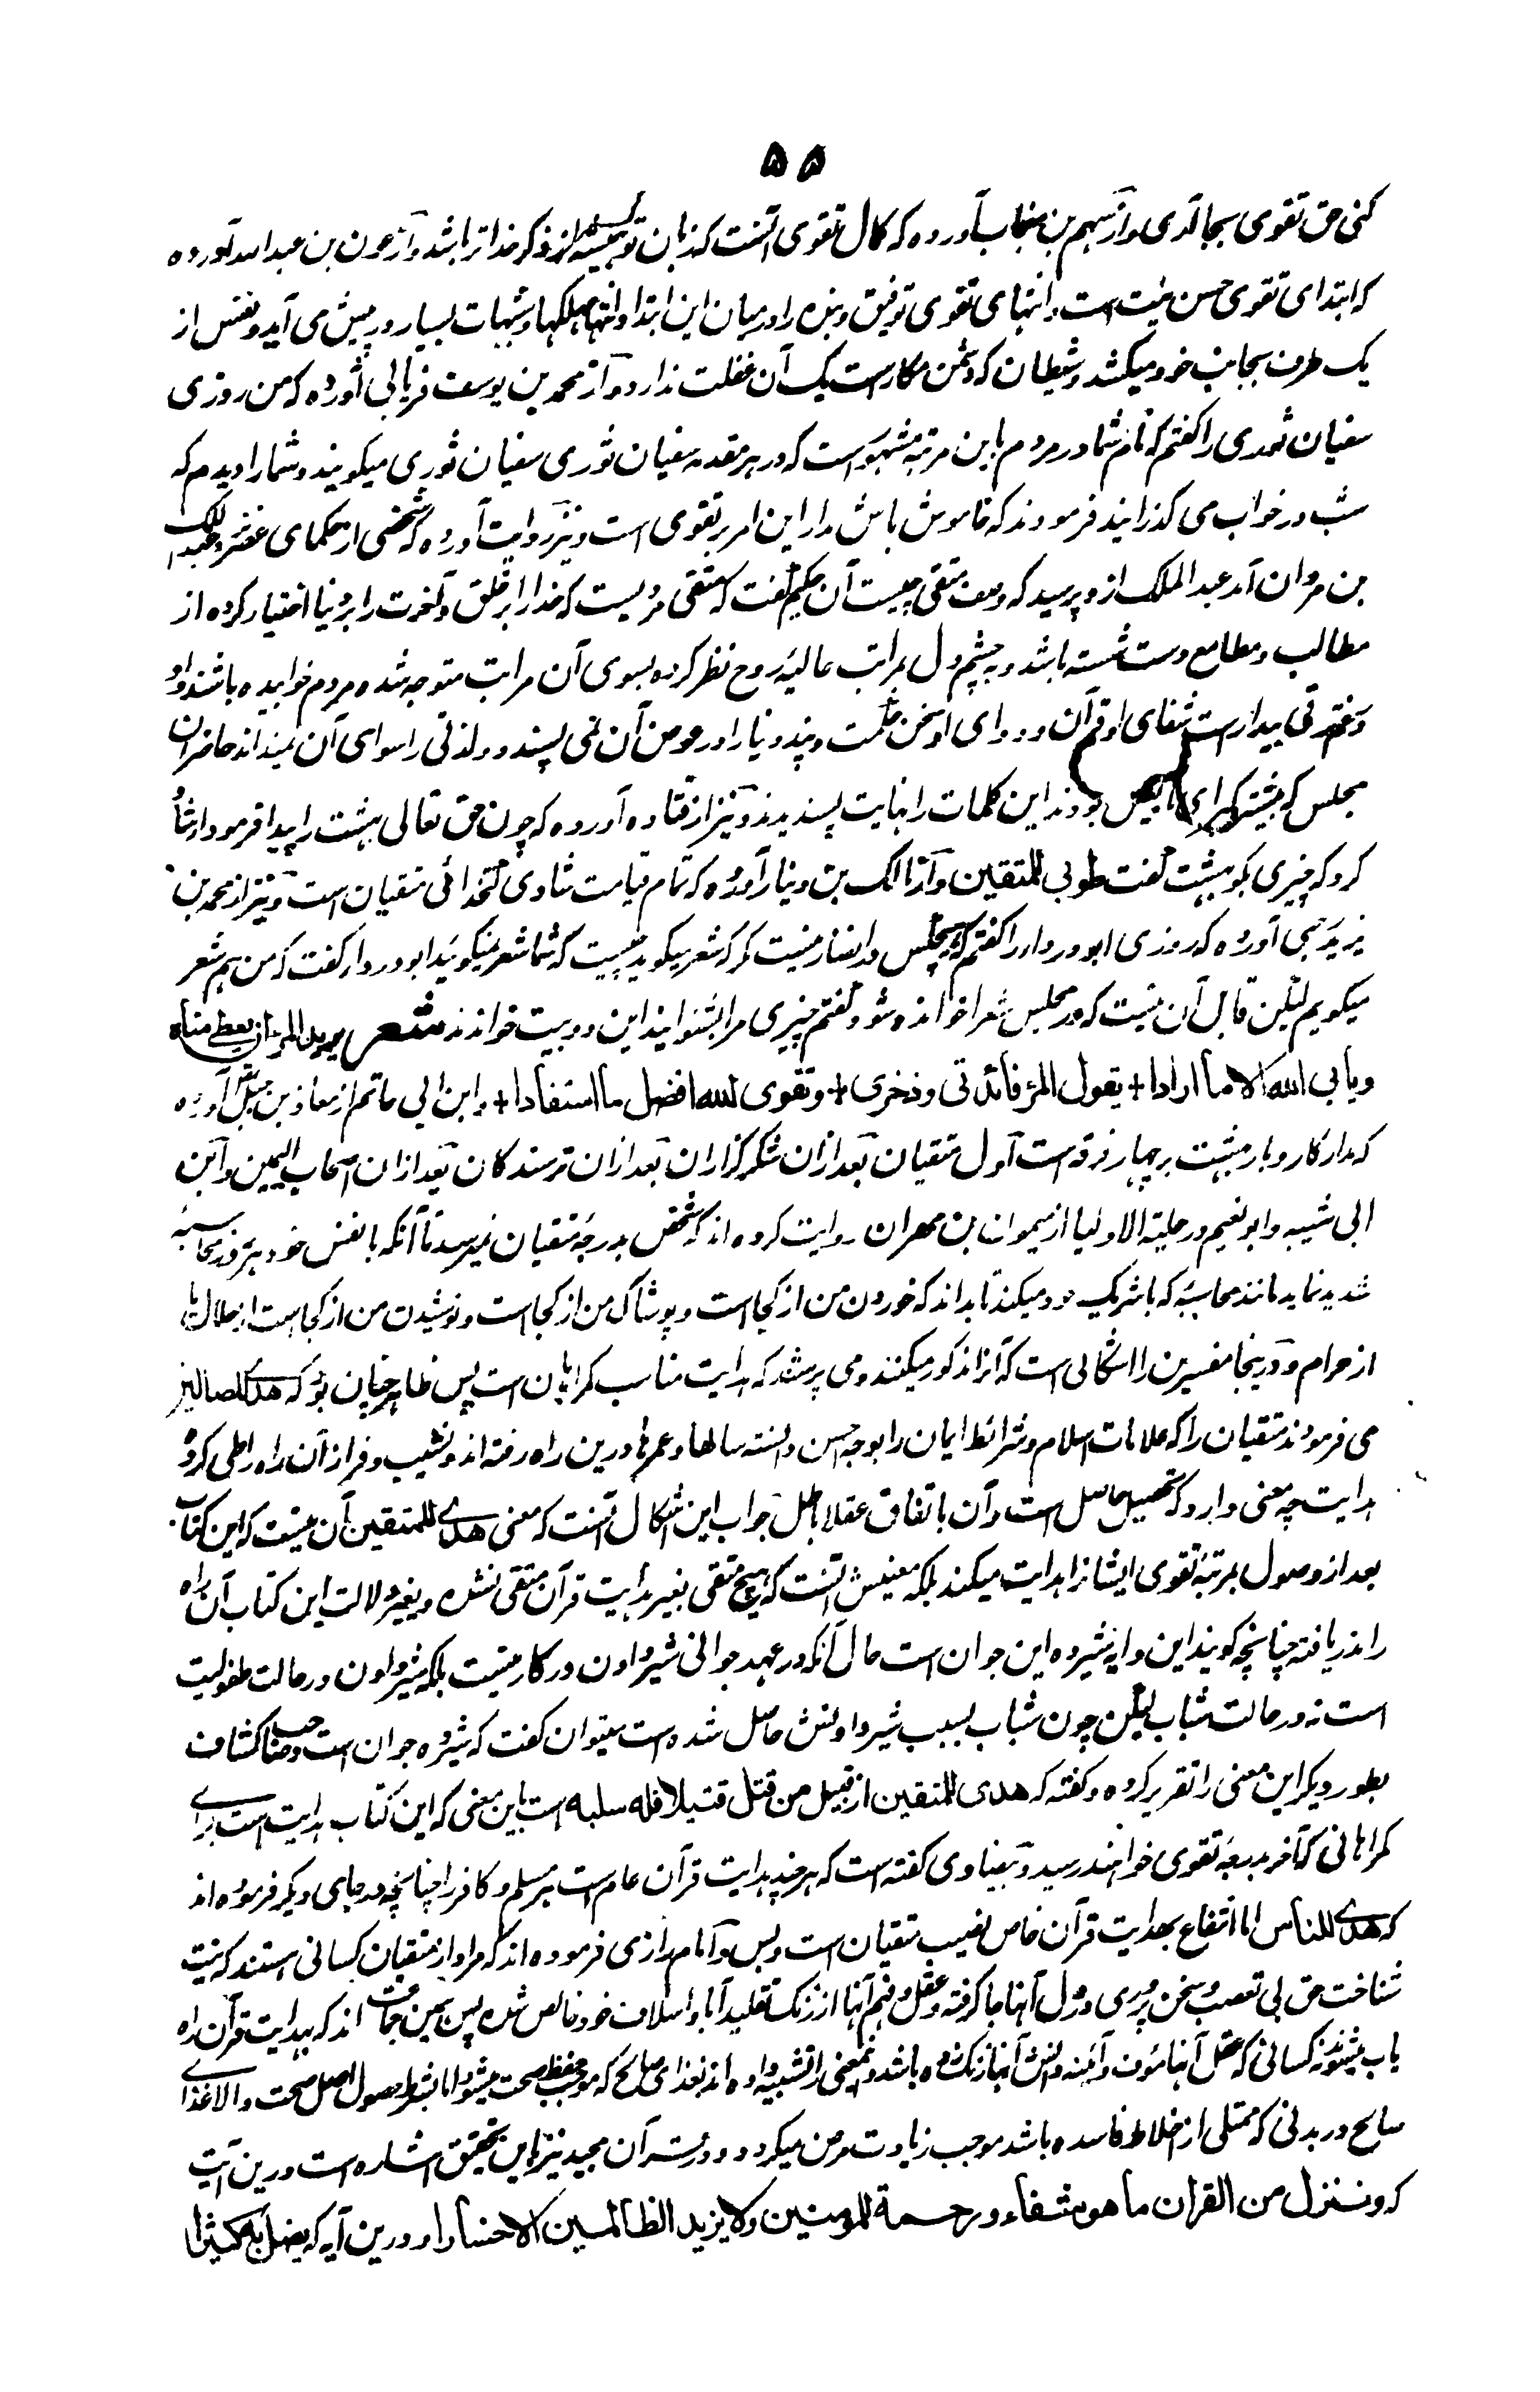 ۵۵
کنی حق تقوی بجا آری و از سهم بن منجاب آورده که کمال تقوی آنست که زبان تو همیشه از ذکر خدا تر باشد و از عون بن عبد الله آورده
که ابتدای تقوی حسن نیت است و انتهای تقوی توفیق و بنده را درمیان این ابتدا و انتها مهلکها و شبهات بسیار در پیش می آید و نفس از
یک طرف بجانب خود میکشد و شیطان که دشمن مکارست یک آن غفلت ندارد و از محمد بن یوسف فریابی آورده که من روزی
سفیان ثوری را گفتم که نام شما در مردم باین مرتبه مشهورست که در هر مقدمه سفیان ثوری سفیان ثوری میگویند و شما را دیدم که
شب در خواب می گذرانید فرمودند که خاموش باش مدار این امر بر تقوی است و نیز روایت آورده که شخصی از حکمای عنصر نزد عبد الملک
بن مروان آمد عبد الملک ازو پرسید که وصف متقی چیست آن حکیم گفت که متقی مردیست که خدا را بر خلق و آخرت را بر دنیا اختیار کرده از
مطالب و مطامع دست شسته باشد و بچشم دل بمراتب عالیه روح نظر کرده بسوی آن مراتب متوجه شده مردم خوابیده باشند و او
در غم ترقی بیدارست شفای او قرآن و دوای او سخن حکمت و پند دنیا را در عوض آن نمی پسندد و لذتی را سوای آن نمیداند حاضران
مجلس که بیشتر کبرای تابعین بودند این کلمات را نهایت پسندیدند و نیز از قتاده آورده که چون حق تعالی بهشت را پیدا فرمود ارشاد
کرد که چیزی بگو بهشت گفت طوبی للمتقین و از مالک بن دینار آورده که تمام قیامت شادی کتخدائی متقیان است و نیز از محمد بن
یزید رحبی آورده که روزی ابو دردا را گفتم که هیچکس در انصار نیست مگر که شعر میگوید چیست که شما شعر نمیگوئید ابو دردا گفت که من هم شعر
میگویم لیکن قابل آن نیست که در مجلس شعرا خوانده شود گفتم چیزی مرا بشنوانید این دو بیت خواندند شعر یرید المرء ان یعطی مناه
ویأبی الله الا ما ارادا + یقول المرء فائدتی وذخری + وتقوی الله افضل ما استفادا + و ابن ابی حاتم از معاذ بن جبل آورده
که مدار کاروبار بهشت بر چهار فرقه است اول متقیان بعد ازان شکر گزاران بعد ازان ترسندگان بعد ازان اصحاب الیمین و ابن
ابی شیبه و ابو نعیم در حلیة الاولیا از میمون بن مهران روایت کرده اند که شخص بدرجه متقیان نمیرسد تا آنکه با نفس خود هر روز محاسبه
شدید نماید مانند محاسبه که با شریک خود میکند تا بداند که خوردن من از کجا است و پوشاک من از کجا است و نوشیدن من از کجا است از حلال یا
از حرام و درینجا مفسرین را اشکالی است که آنرا ذکور میکنند و می پرسند که هدایت مناسب گمراهان است پس ظاهر چنان بود که هدی للضالین
می فرمودند متقیان را که علامات اسلام و شرائط ایمان را بوجه احسن دانسته سالها و عمرها درین راه رفته اند و نشیب و فراز آن راه را طی کرده
هدایت چه معنی دارد که تحصیل حاصل است و آن باتفاق عقلا باطل جواب این اشکال آنست که معنی هدی للمتقین آن نیست که این کتاب
بعد از وصول بمرتبه تقوی ایشانرا هدایت میکند بلکه معنیش آنست که هیچ متقی بغیر هدایت قرآن متقی نشده و بغیر دلالت این کتاب آن راه
را ندریافته چنانچه گویند این دایه شیرده این جوان است حال آنکه در عهد جوانی شیر دادن در کار نیست بلکه شیر دادن در حالت طفولیت
است نه در حالت شباب لیکن چون شباب بسبب شیر دادنش حاصل شده است میتوان گفت که شیرده جوان است و صاحب کشاف
بطور دیگر این معنی را تقریر کرده و گفته که هدی للمتقین از قبیل من قتل قتیلا فله سلبه است باین معنی که این کتاب هدایت است برای
گمراهانی که آخر بدرجه تقوی خواهند رسید و بیضاوی گفته است که هر چند هدایت قرآن عام است هر مسلم و کافر را چنانچه در جای دیگر فرموده اند
که هدی للناس اما انتفاع بهدایت قرآن خاص نصیب متقیان است و بس و امام رازی فرموده اند که مراد از متقیان کسانی استند که نیت
شناخت حق بی تعصب و سخن پروری در دل آنها جا گرفته و عقل و فهم آنها از زنگ تقلید آبا و اسلاف خود خالص شده پس همین جماعت اند که بهدایت قرآن راه
یاب میشوند نه کسانی که عقل آنها مؤف و آئینه دانش آنها زنگ زده باشد و این معنی را تشبیه داده اند بغذای صالح که موجب حفظ صحت میشود اما بشرط حصول اصل صحت و الا غذای
صالح در بدنی که ممتلی از اخلاط فاسده باشد موجب زیادت مرض میگردد و در قرآن مجید نیز باین تحقیق اشاره است درین آیت
که وننزل من القران ما هو شفاء ورحمة للمؤمنین ولا یزید الظالمین الا خسارا و درین آیه که یضل به کثیرا